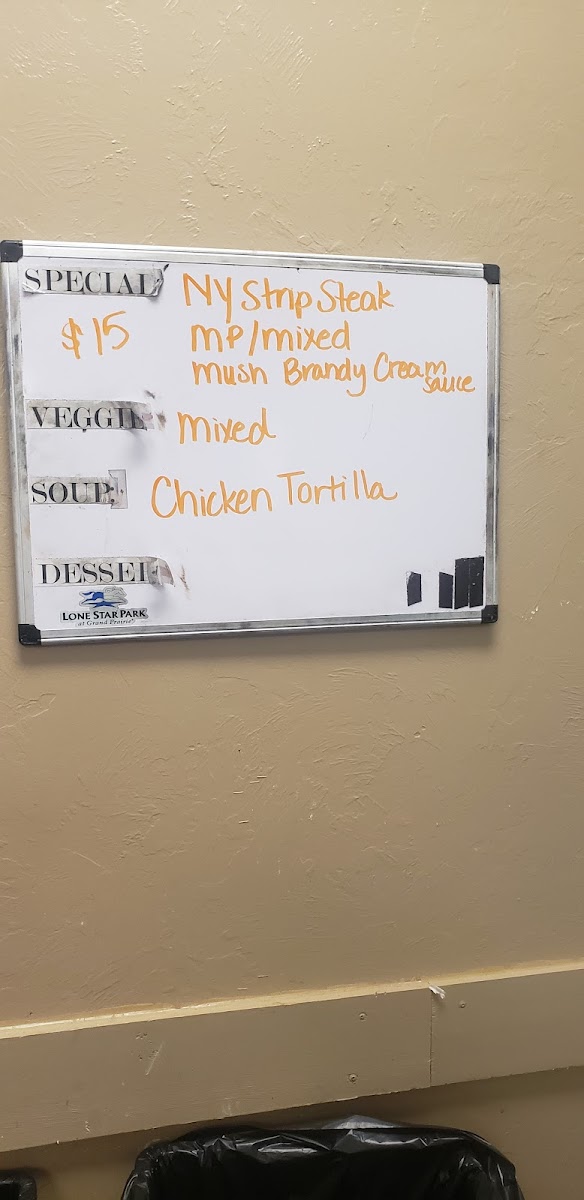 SPECIAL NY Strip Steak
$15 mp/mixed
mush Brandy Cream sauce
VEGGIE mixed
SOUP: Chicken Tortilla
DESSER
LONE STAR PARK
at Grand Prairie